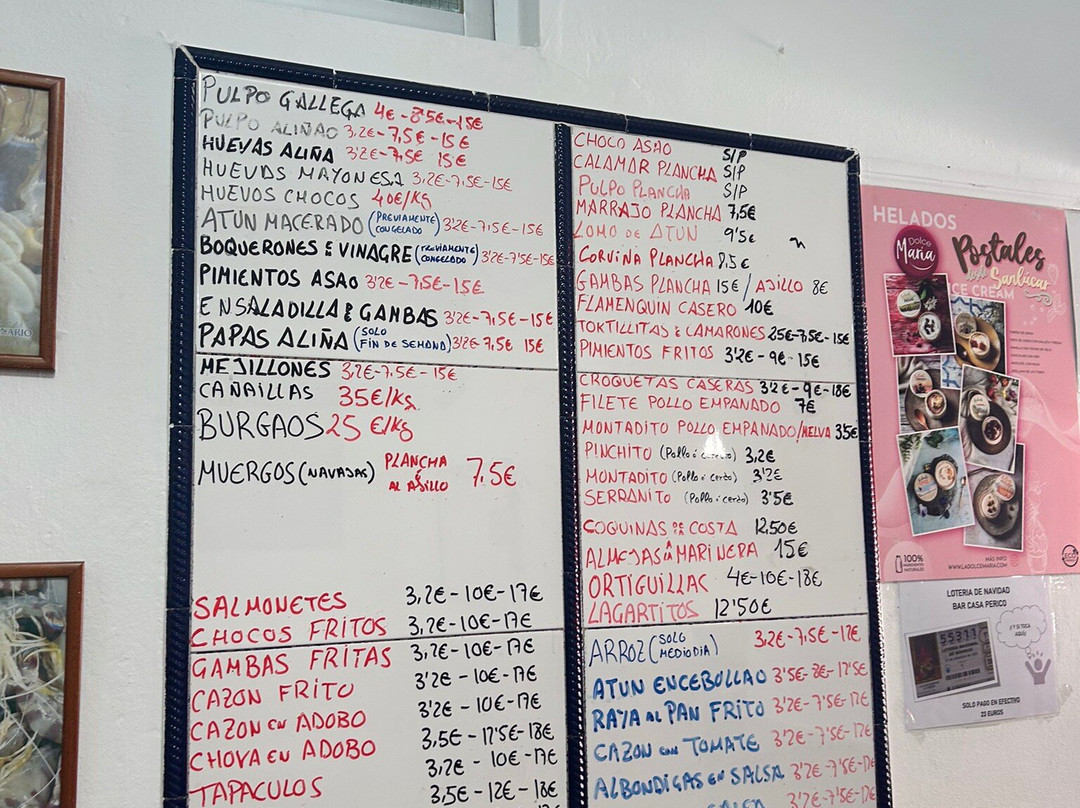 PULPO GALLEGA 4€-8'5€-15€
PULPO ALIÑAO 3,2€-7,5€-15€
HUEVAS ALIÑA 3'2€-7,5€ 15€
HUEVAS MAYONESA 3,2€-7,5€-15€
HUEVOS CHOCOS 40€/Kg
ATUN MACERADO (PREVIAMENTE CONGELADO) 3'2€-7'5€-15€
BOQUERONES E VINAGRE (PREVIAMENTE CONGELADO) 3'2€-7'5€-15€
PIMIENTOS ASAO 3'2€-7,5€-15€
ENSALADILLA E GAMBAS 3'2€-7,5€-15€
PAPAS ALIÑA (SOLO FIN DE SEMANA) 3'2€ 7,5€ 15€
MEJILLONES 3,2€-7,5€-15€
CAÑAILLAS 35€/Kg
BURGAOS 25 €/Kg
MUERGOS (NAVAJAS) PLANCHA AL AJILLO 7,5€
SALMONETES 3,2€-10€-17€
CHOCOS FRITOS 3,2€-10€-17€
GAMBAS FRITAS 3,2€-10€-17€
CAZON FRITO 3'2€-10€-17€
CAZON EN ADOBO 3'2€-10€-17€
CHOVA EN ADOBO 3,5€-12'5€-18€
TAPACULOS 3,2€-10€-17€
3,5€-12€-18€
CHOCO ASAO S/P
CALAMAR PLANCHA S/P
PULPO PLANCHA S/P
MARRAJO PLANCHA 7,5€
LOMO DE ATUN 9'5€
CORVINA PLANCHA 8,5€
GAMBAS PLANCHA 15€/AJILLO 8€
FLAMENQUIN CASERO 10€
TORTILLITAS E CAMARONES 2,5€-7,5€-15€
PIMIENTOS FRITOS 3'2€-9€-15€
CROQUETAS CASERAS 3'2€-9€-18€
FILETE POLLO EMPANADO 7€
MONTADITO POLLO EMPANADO/MELVA 3,5€
PINCHITO (Pollo o cerdo) 3,2€
MONTADITO (Pollo o cerdo) 3'2€
SERRANITO (Pollo o cerdo) 3'5€
COQUINAS DE COSTA 12,50€
ALMEJAS A LA MARINERA 15€
ORTIGUILLAS 4€-10€-18€
LAGARTITOS 12'50€
ARROZ (SOLO MEDIODIA) 3,2€-7,5€-12€
ATUN ENCEBOLLAO 3'5€-8€-17'5€
RAYA AL PAN FRITO 3'2€-7'5€-17€
CAZON CON TOMATE 3'2€-7'5€-17€
ALBONDIGAS EN SALSA 3'2€-7'5€-17€
SALSA 3'2€-7'5€
HELADOS
Dolce Maria
Postales
desde Sanlúcar
ICE CREAM
100%
INGREDIENTES NATURALES
MÁS INFO
WWW.LADOLCEMARIA.COM
ECO
LOTERIA DE NAVIDAD
BAR CASA PERICO
¿Y SI TOCA AQUÍ?
55311
SOLO PAGO EN EFECTIVO
23 EUROS
SARIO